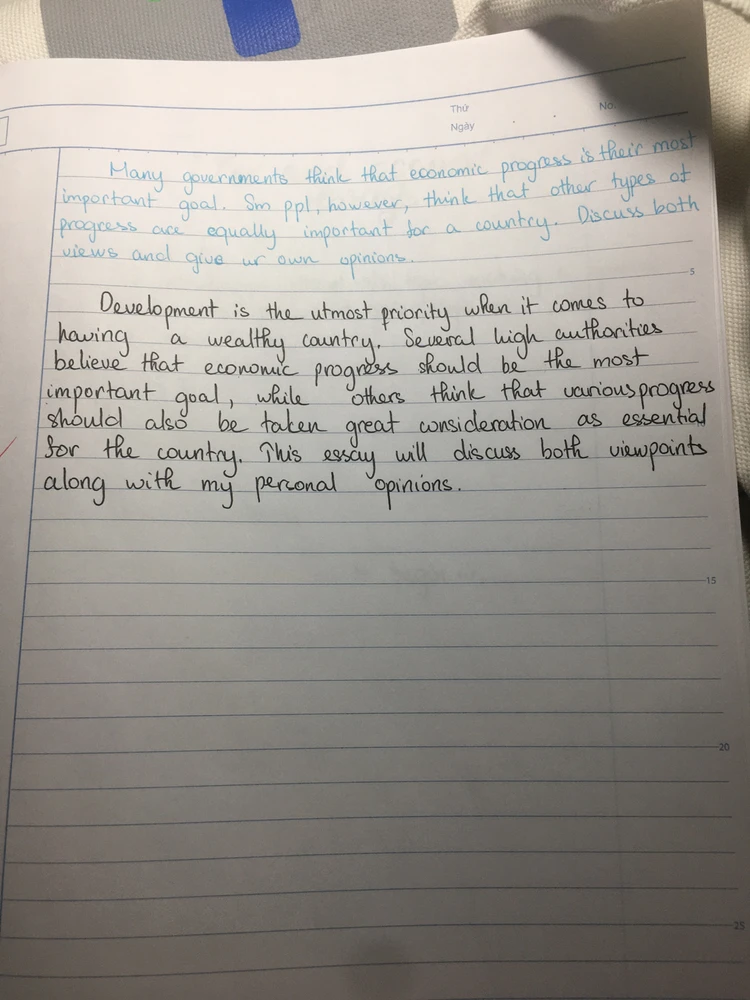 Thứ
No.
Ngày
Many governments think that economic progress is their most
important goal. Sm ppl, however, think that other types of
progress are equally important for a country. Discuss both
views and give ur own opinions.
5
Development is the utmost priority when it comes to
having a wealthy country. Several high authorities
believe that economic progress should be the most
important goal, while others think that various progress
should also be taken great consideration as essential
for the country. This essay will discuss both viewpoints
along with my personal opinions.
15
20
25